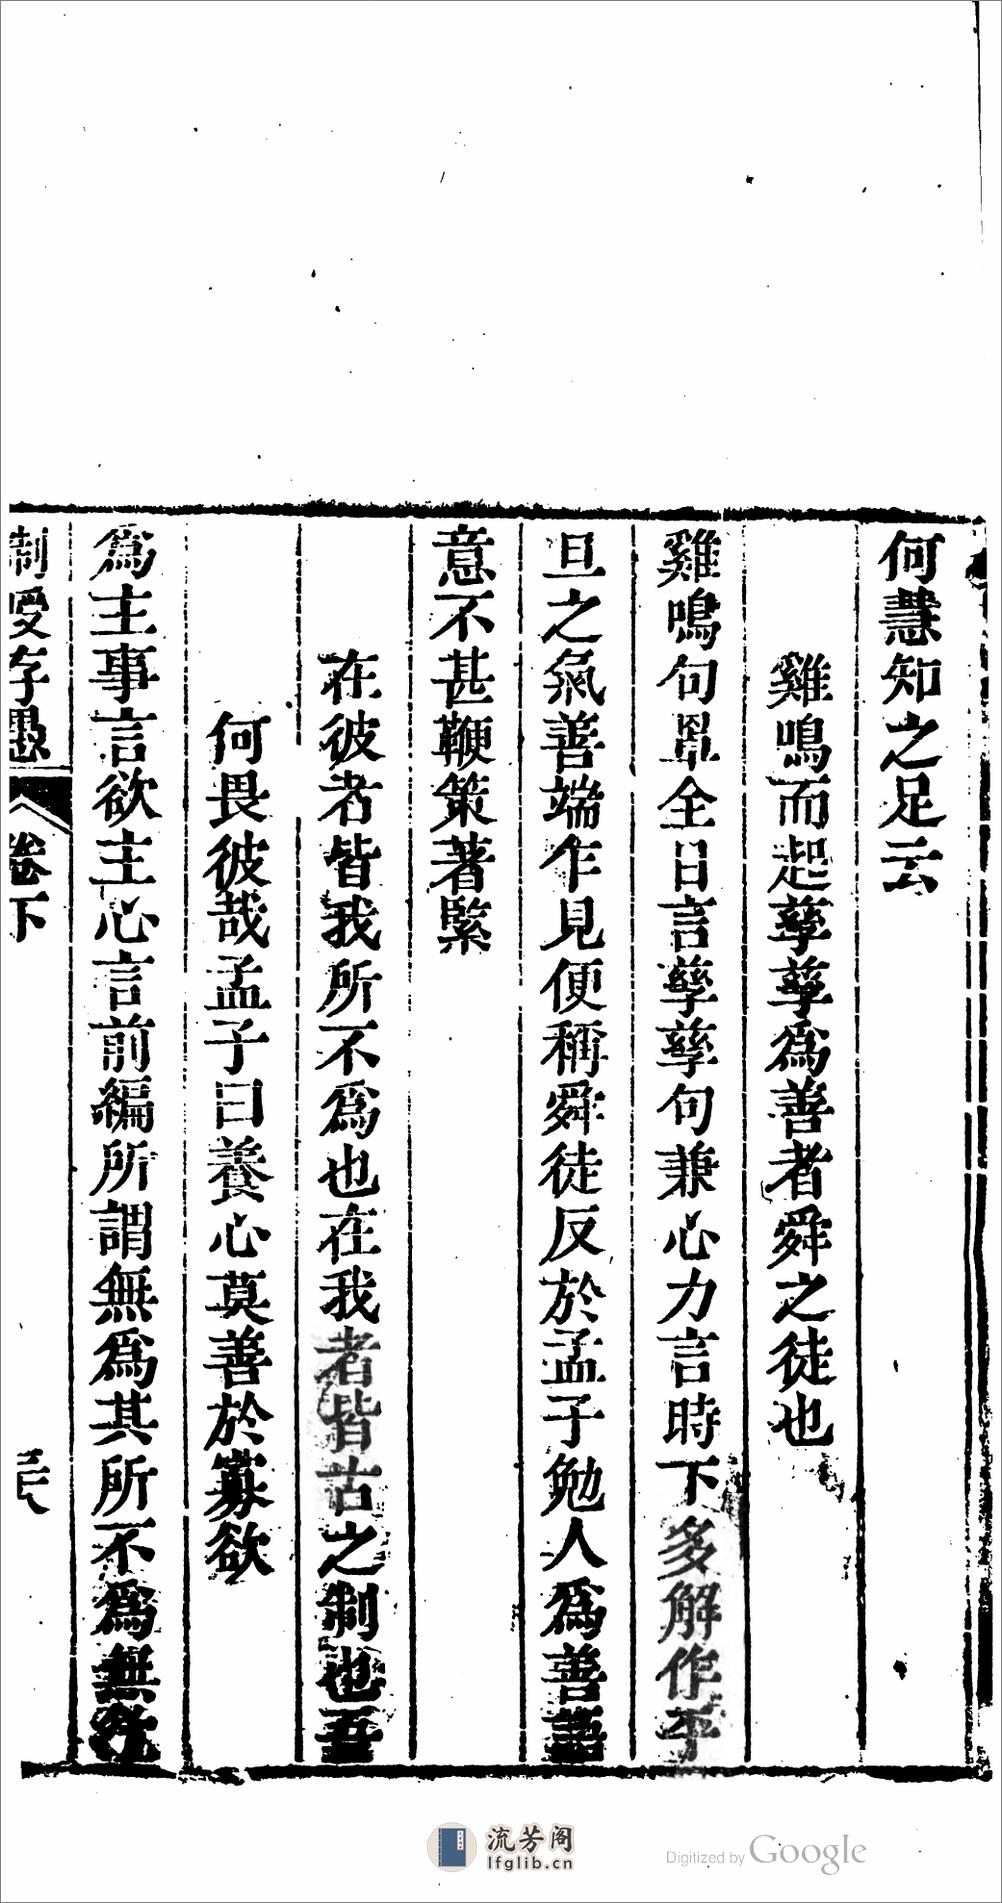 何慧知之足云
雞鳴而起孳孳爲善者舜之徒也
雞鳴句單全日言孳孳句兼心力言時下多解作平
旦之氣善端乍見便稱舜徒反於孟子勉人爲善語
意不甚鞭策著緊
在彼者皆我所不爲也在我者皆古之制也吾
何畏彼哉孟子曰養心莫善於寡欲
爲主事言欲主心言前編所謂無爲其所不爲無欲
制受存愚 卷下
流芳阁
lfglib.cn
Digitized by Google